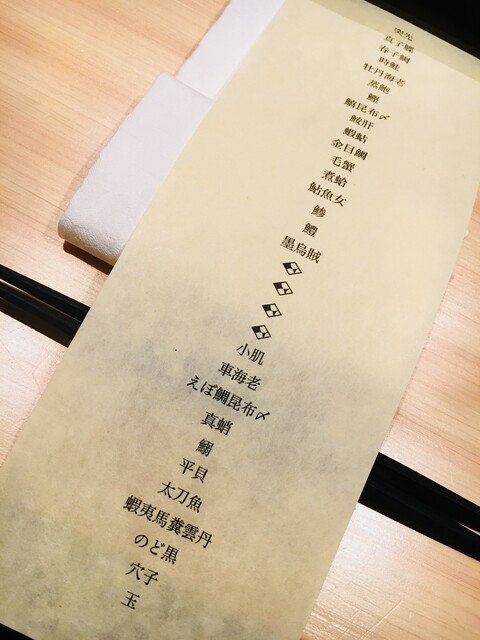 突先
真子鰈
春子鯛
時鮭
牡丹海老
蒸鮑
鰹
鱚昆布〆
鮟肝
蝦蛄
金目鯛
毛蟹
煮蛤
鮎魚女
鯵
鱧
墨烏賊
小肌
車海老
えぼ鯛昆布〆
真蛸
鰯
平貝
太刀魚
蝦夷馬糞雲丹
のど黒
穴子
玉